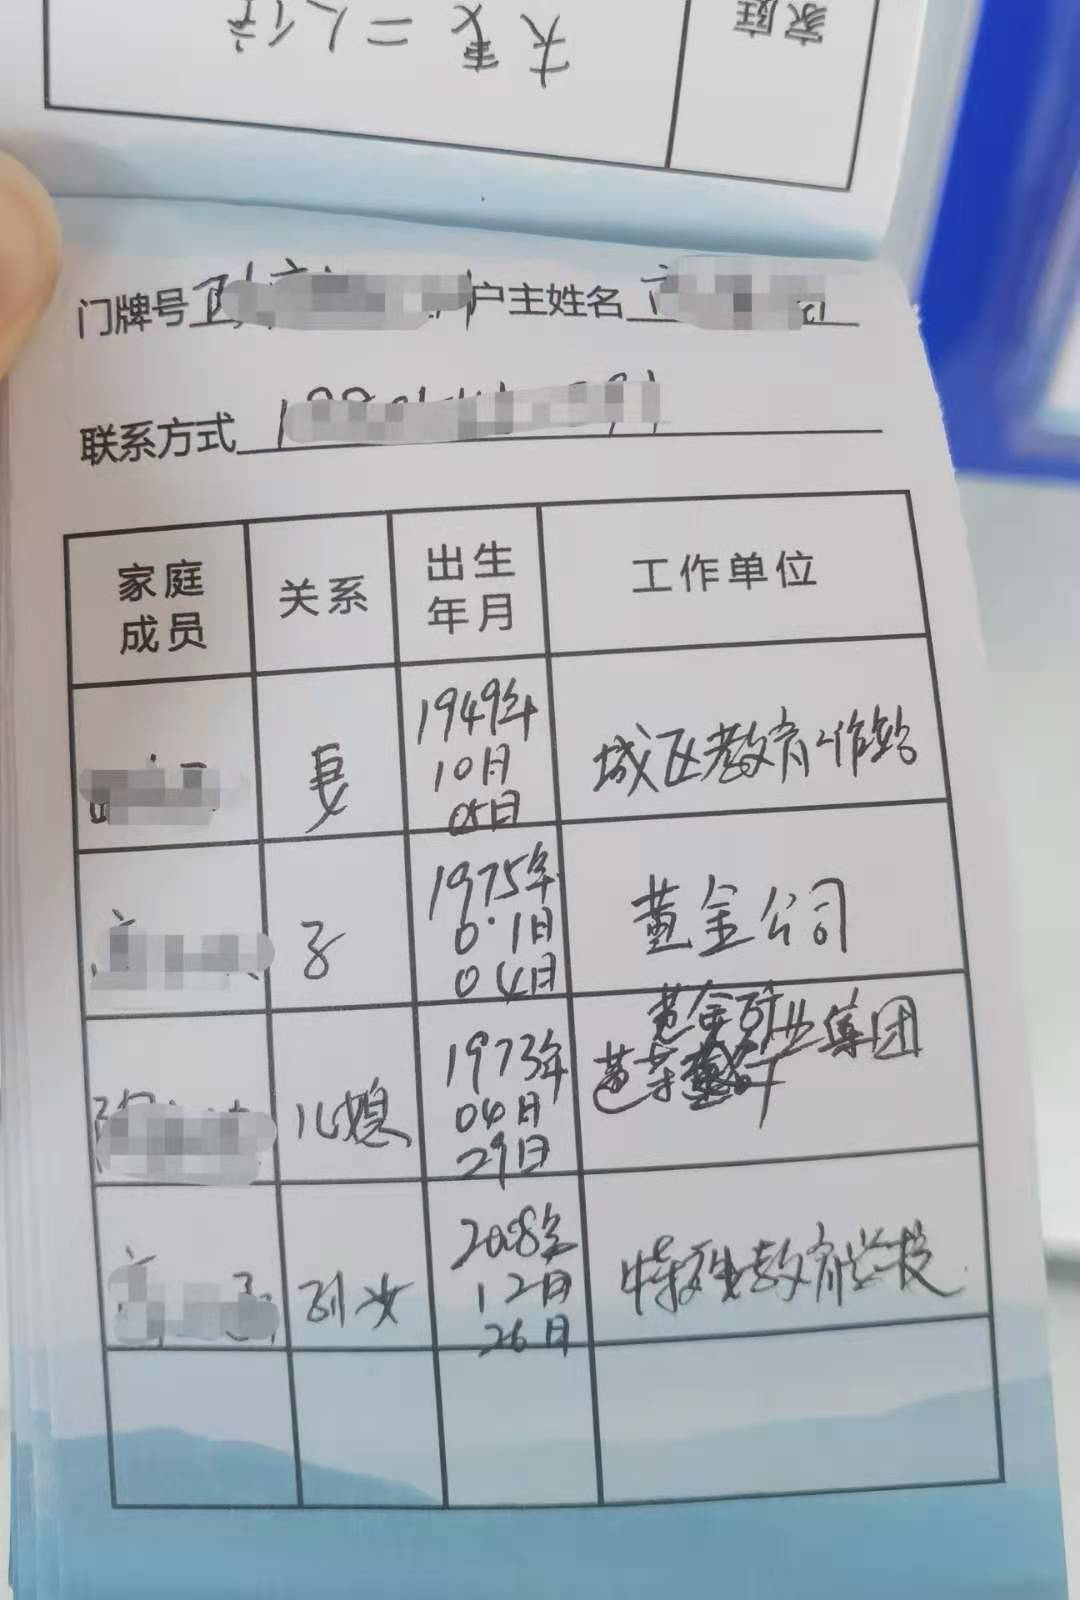 家庭
夫妻二人住
门牌号 户主姓名
联系方式
家庭成员 关系 出生年月 工作单位
妻 1949年10月05日 城区教育工作站
子 1975年01日04日 黄金公司
儿媳 1973年04月29日 黄金矿业集团
孙女 2008年12月26日 特殊教育学校